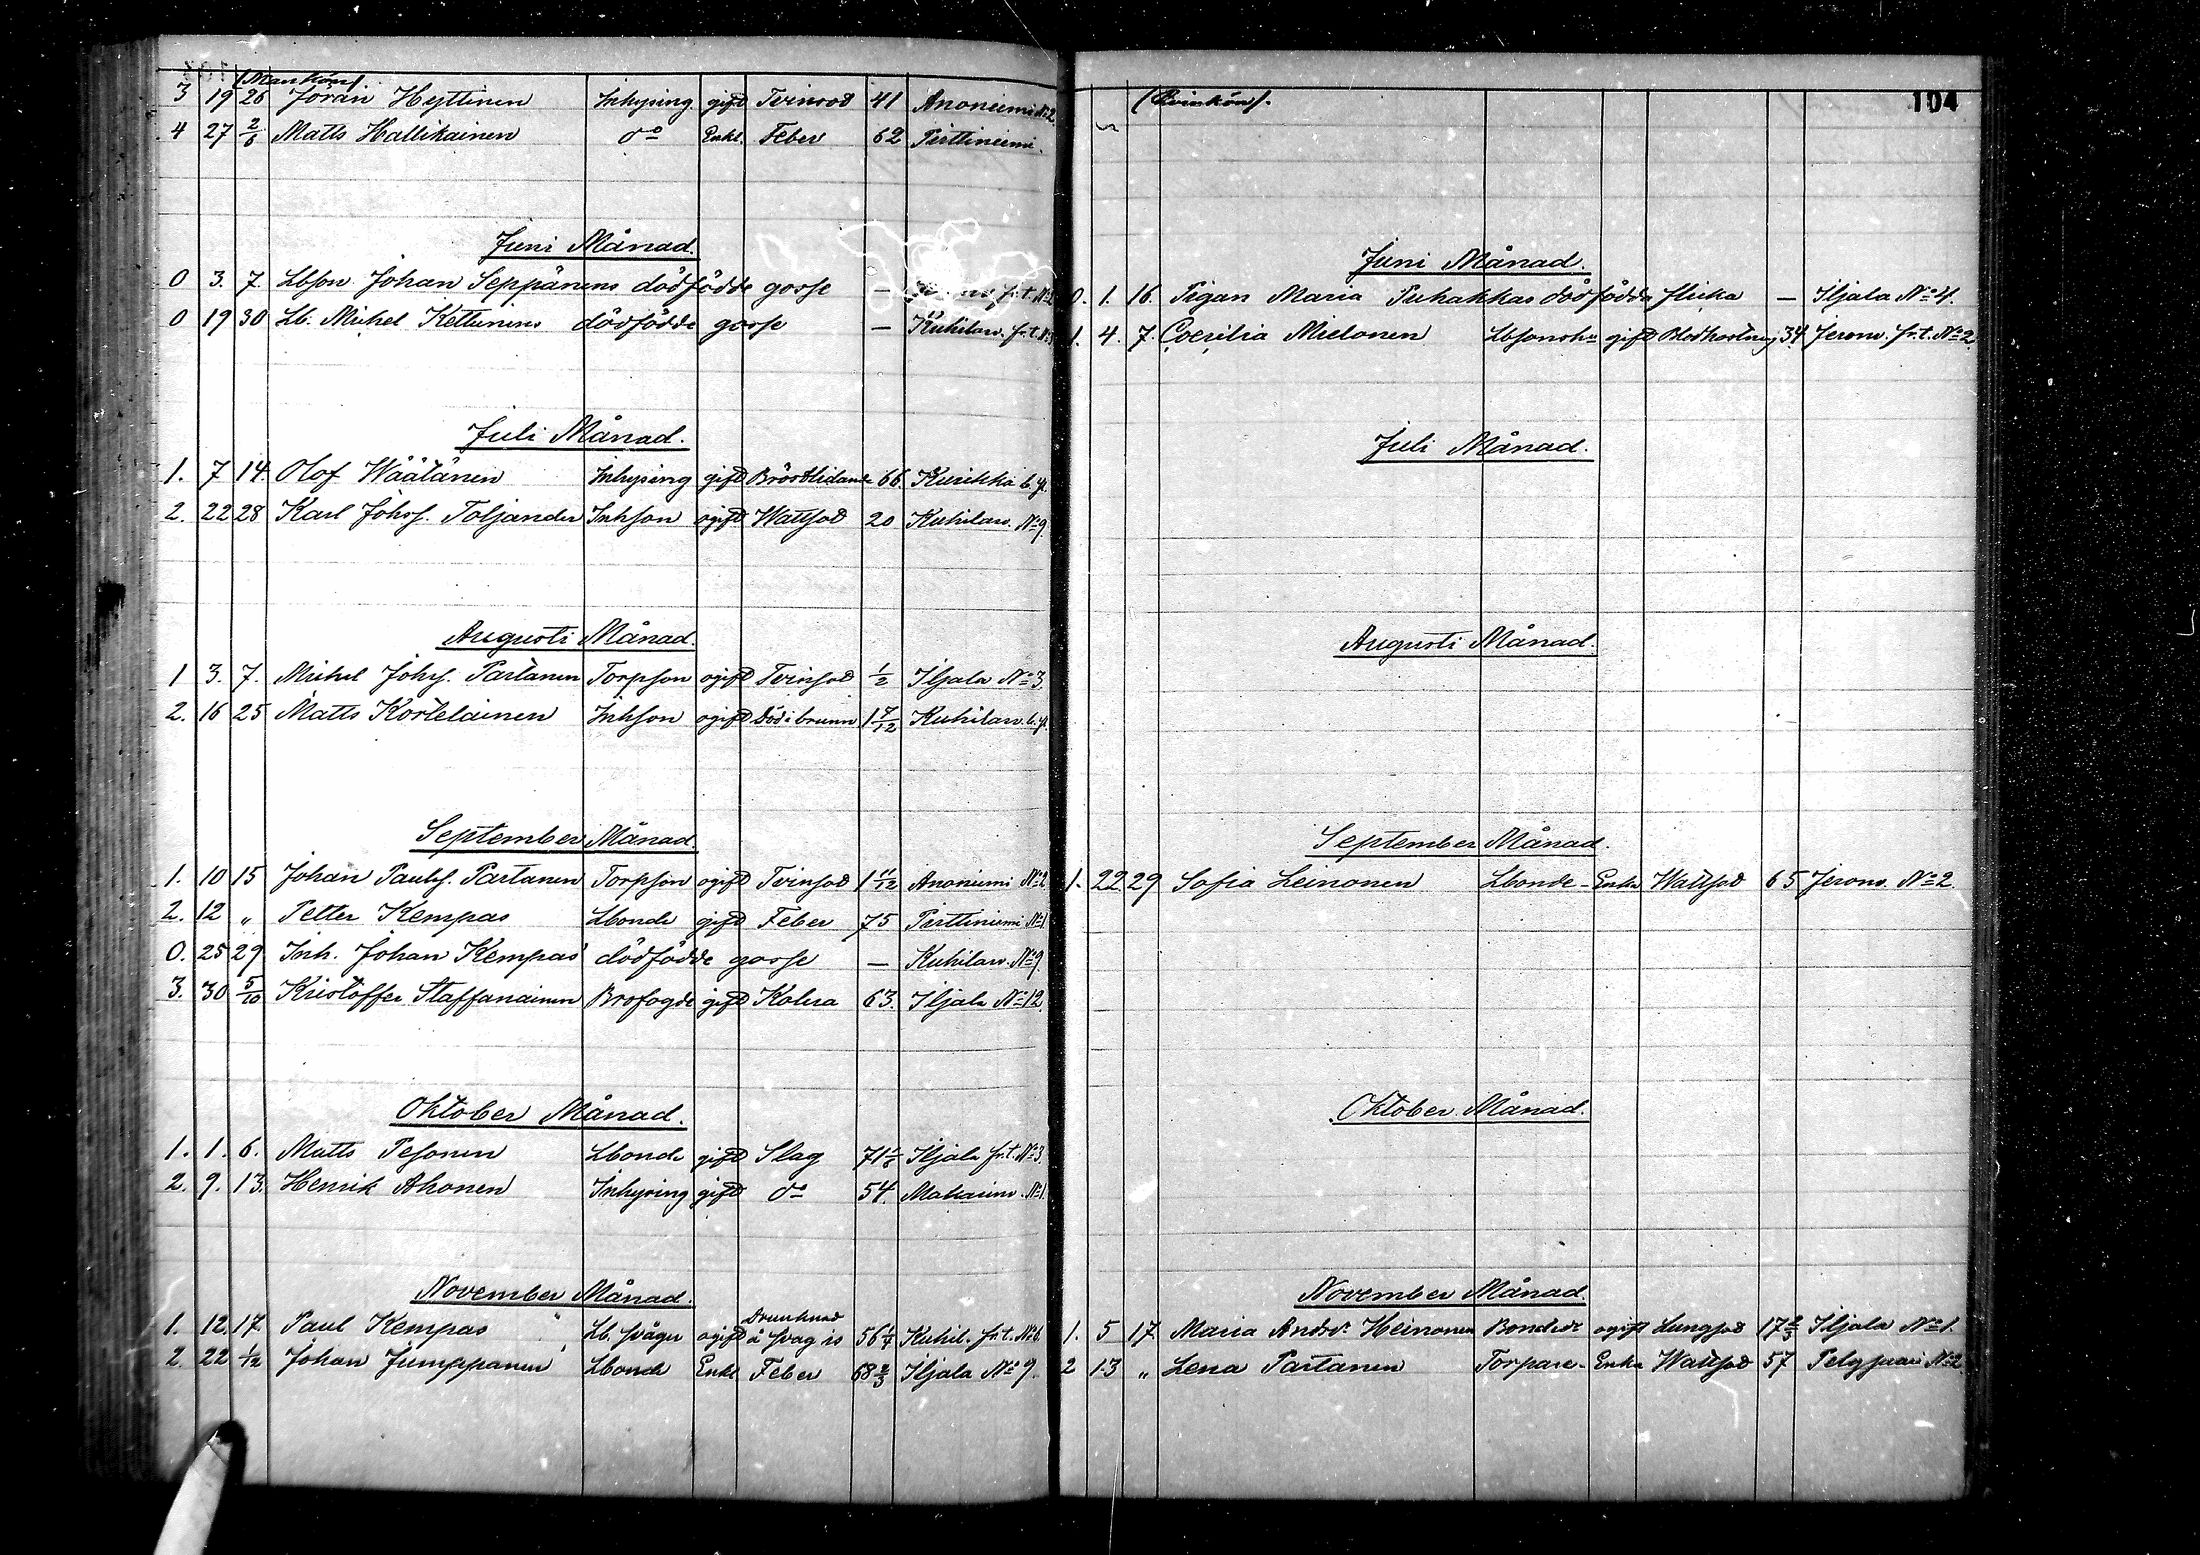 (Mankön)
3 19 26 Jöran Hyttinen Inhysing gift Tvinsot 41 Anoniemi No 2
4 27 2/6 Matts Hallikainen do Enkl. Feber 62 Pirttiniemi.
Juni Månad.
0 3. 7. Lbson Johan Seppänens dödfödde gosse — fr.t. No 2
0 19 30 Lb. Michel Kettunens dödfödde gosse — Kuhilaw. fr.t. No 3
Juli Månad.
1. 7 14. Olof Wäätänen Inhysing gift Bröstlidande 66. Kurikka b. yl.
2. 22 28 Karl Johss. Toljander Inhson ogift Wattsot 20 Kuhilaw. No 9.
Augusti Månad.
1 3. 7. Michel Johs. Partanen Torpson ogift Tvinsot 1/2 Iljala No 3.
2. 16 25 Matts Kortelainen Inhson ogift Död i brunn 1 7/12 Kuhilaw. b. yl.
September Månad
1. 10 15 Johan Paulss. Partanen Torpson ogift Tvinsot 1 11/12 Anoniemi No 2
2. 12 „ Petter Kempas Lbonde gift Feber 75 Pirttiniemi No 1
0. 25 29 Inh. Johan Kempas' dödfödde gosse — Kuhilaw. No 9
3. 30 5/10 Kristoffer Staffanainen Brofogde gift Kolera 63. Iljala No 12.
Oktober Månad.
1. 1. 6. Matts Pesonen Lbonde gift Slag 71 Iljala fr.t. No 3.
2. 9. 13. Henrik Ahonen Inhysing gift do 54. No 1.
November Månad.
1. 12. 17. Paul Kempas Lb. svåger ogift Drunknad å svag is 56 1/4 Kuhil. fr.t. No 6
2. 22 1/12 Johan Jumppanen Lbonde Enkl. Feber 68 2/3 Iljala No 9.
104
(Qvinkön).
Juni Månad.
0. 1. 16. Pigan Maria Puhakkas dödfödda flicka — Iljala No 4.
1. 4. 7. Coecilia Mielonen Lbsonshu gift Blodhostning 34 Jeronw. fr.t. No 2.
Juli Månad.
Augusti Månad.
September Månad.
1. 22 29 Sofia Leinonen Lbonde- Enka Wattsot 65 Jeronw. No 2.
Oktober Månad.
November Månad.
1. 5 17. Maria Andsdr Heinonen Bondedr ogift Lungsot 17 2/3 Iljala No 1.
2 13 „ Lena Partanen Torpare- Enka Wattsot 57 No 2.